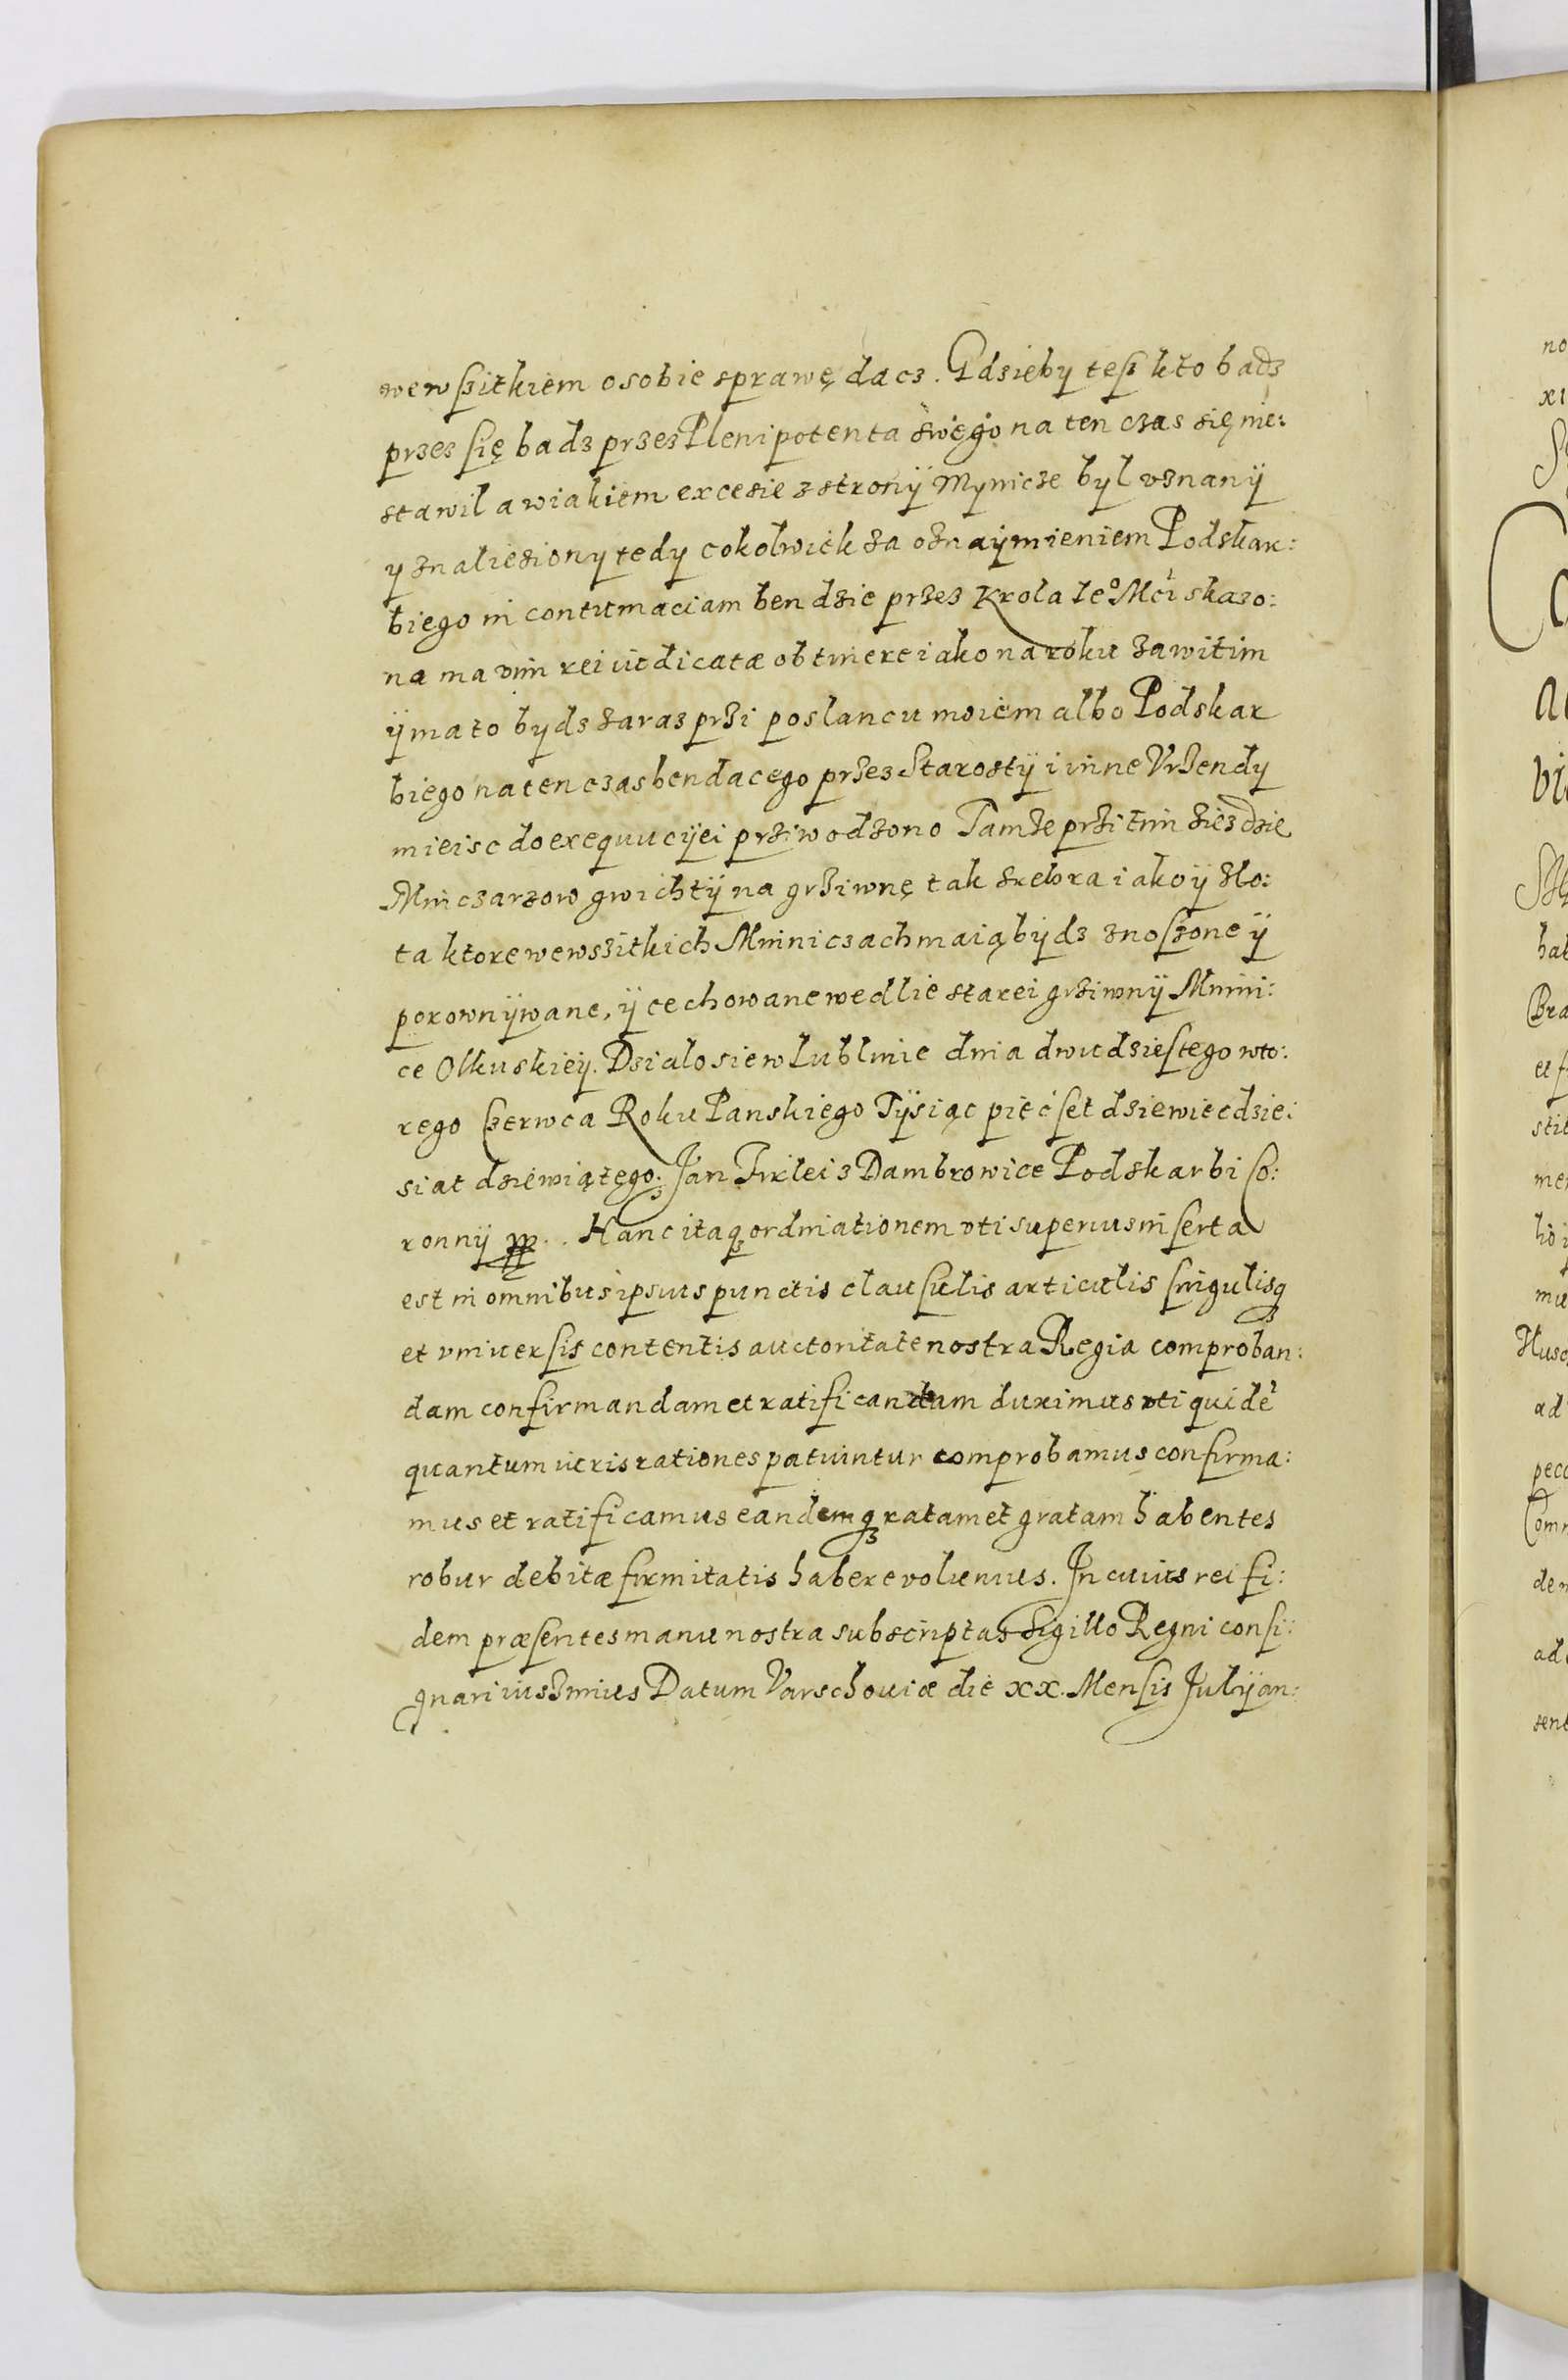 wewszitkiem osobie sprawę dacz. Gdzieby tesz kto badz
przez się badz przez Plenipotenta swięgo na ten czas się nie:
stawil a wiakiem excesie z strony Mynicze byl vznany
y znalieziony tedy cokolwiek za oznaymieniem Podskar:
biego in contumaciam bendzie przez Krola Ieº Mci skazo:
na ma vim rei iudicatæ obtinere iako na roku zawitim
ÿ ma to bydz zaraz przi poslancu moiem albo Podskar
biego na ten czas bendacego przez Starostÿ i inne Vrzendy
mieisc do exequucÿei prziwodzono Tamze przi tim ziezdzie
Minczarzow gwichtÿ na grziwnę tak srebra iako ÿ zlo:
ta ktore wewszitkich Mniniczach maią bÿdz znoszone ÿ
porownÿwane, ÿ cechowane wedlie starei grziwnÿ Mnini:
ce Olkuskieÿ. Dzialo sie w Lublinie dnia dwudziestego wto:
rego Czerwca Roku Panskiego Tÿsiąc piećset dziewiecdzie:
siat dziewiątego. Jan Firlei z Dambrowice Podskarbi Co:
ronnÿ . . Hanc itaq₃ ordinationem vti superius inserta
est in omnibus ipsius punctis clausulis articulis singulisq₃
et vniuersis contentis auctoritate nostra Regia comproban:
dam confirmandam et ratificandam duximus vti quidē
quantum iuris rationes patiuntur comprobamus confirma:
mus et ratificamus eandemq₃ ratam et gratam habentes
robur debitæ firmitatis habere volumus. In cuius rei fi:
dem præsentes manu nostra subscriptas Sigillo Regni consi:
gnari iussimus Datum Varschouiæ die XX. Mensis Julÿ an: